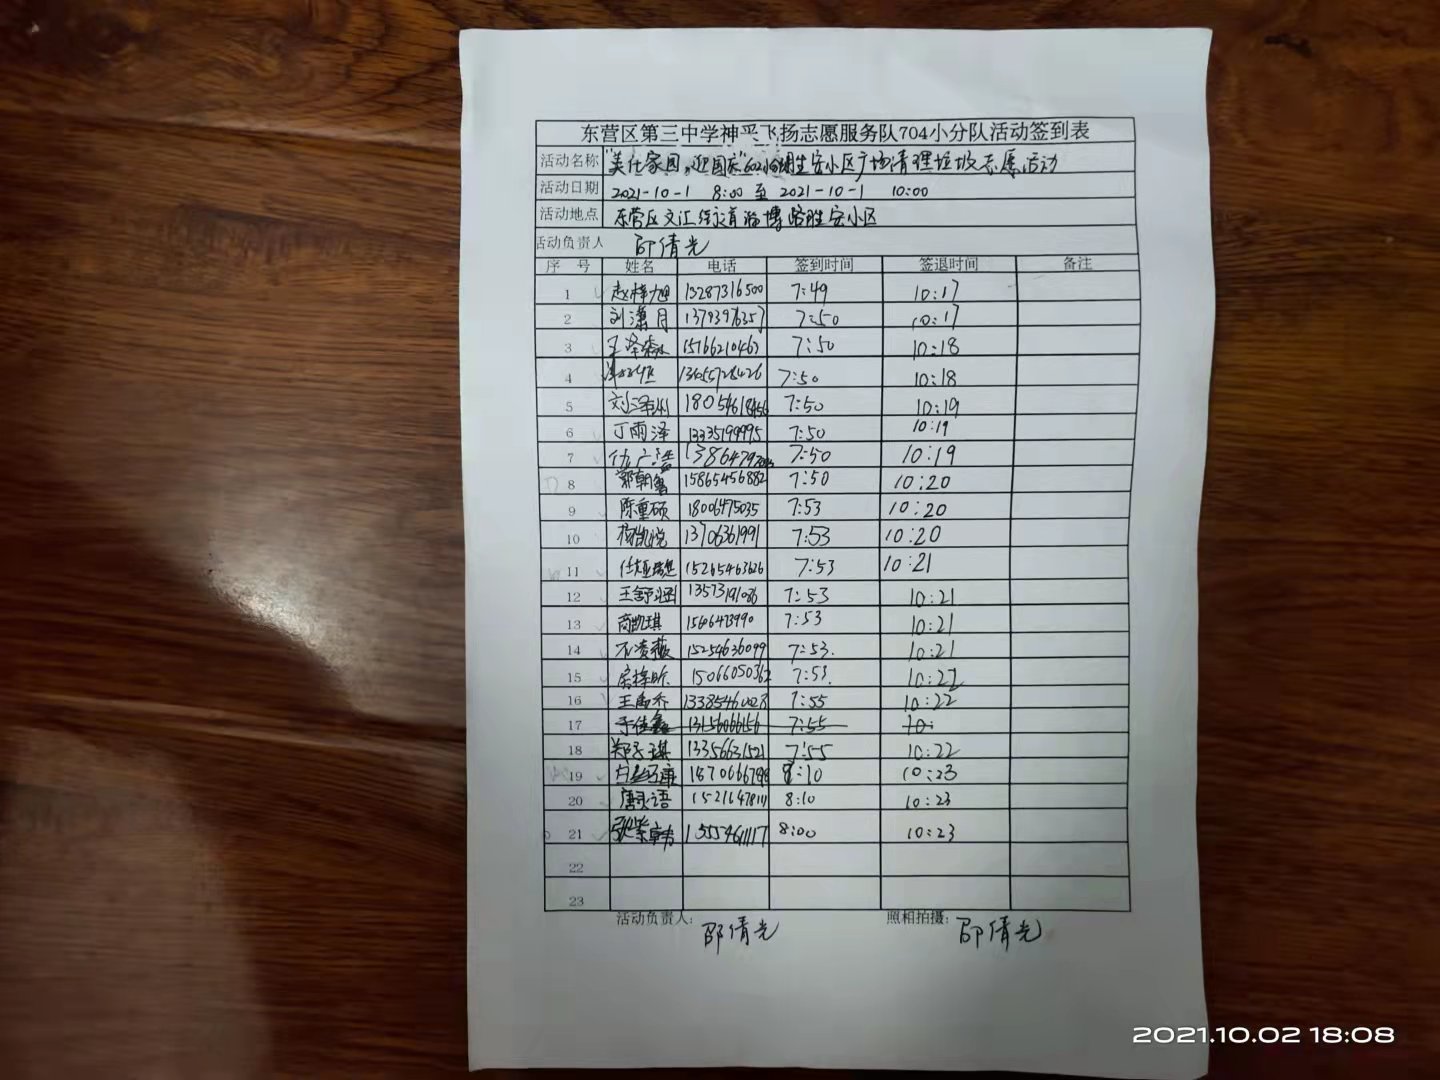 东营区第三中学神采飞扬志愿服务队704小分队活动签到表
活动名称 "美化家园,迎国庆" 胜宏小区广场清理垃圾志愿活动
活动日期 2021-10-1 8:00 至 2021-10-1 10:00
活动地点 东营区文汇 胜宏小区
活动负责人 邵倩光
序号 姓名 电话 签到时间 签退时间 备注
1 赵梓旭 13287316500 7:49 10:17
2 刘潇月 13793976357 7:50 10:17
3 15166210463 7:50 10:18
4 7:50 10:18
5 刘泽州 18054618456 7:50 10:19
6 丁雨泽 13335199995 7:50 10:19
7 仇广浩 7:50 10:19
8 郭朝鲁 15865456882 7:50 10:20
9 陈重硕 18006475035 7:53 10:20
10 杨凯悦 13706361991 7:53 10:20
11 15265463626 7:53 10:21
12 王舒涵 13573191086 7:53 10:21
13 商凯琪 15606473990 7:53 10:21
14 15254636099 7:53. 10:21
15 15066050362 7:53. 10:22
16 王禹乔 7:55 10:22
17 于佳鑫 13156066156 7:55 10:
18 郑子琪 13356631521 7:55 10:22
19 8:10 10:23
20 唐灵语 8:10 10:23
21 张紫韩 15554611117 8:00 10:23
22
23
活动负责人: 邵倩光 照相拍摄: 邵倩光
2021.10.02 18:08